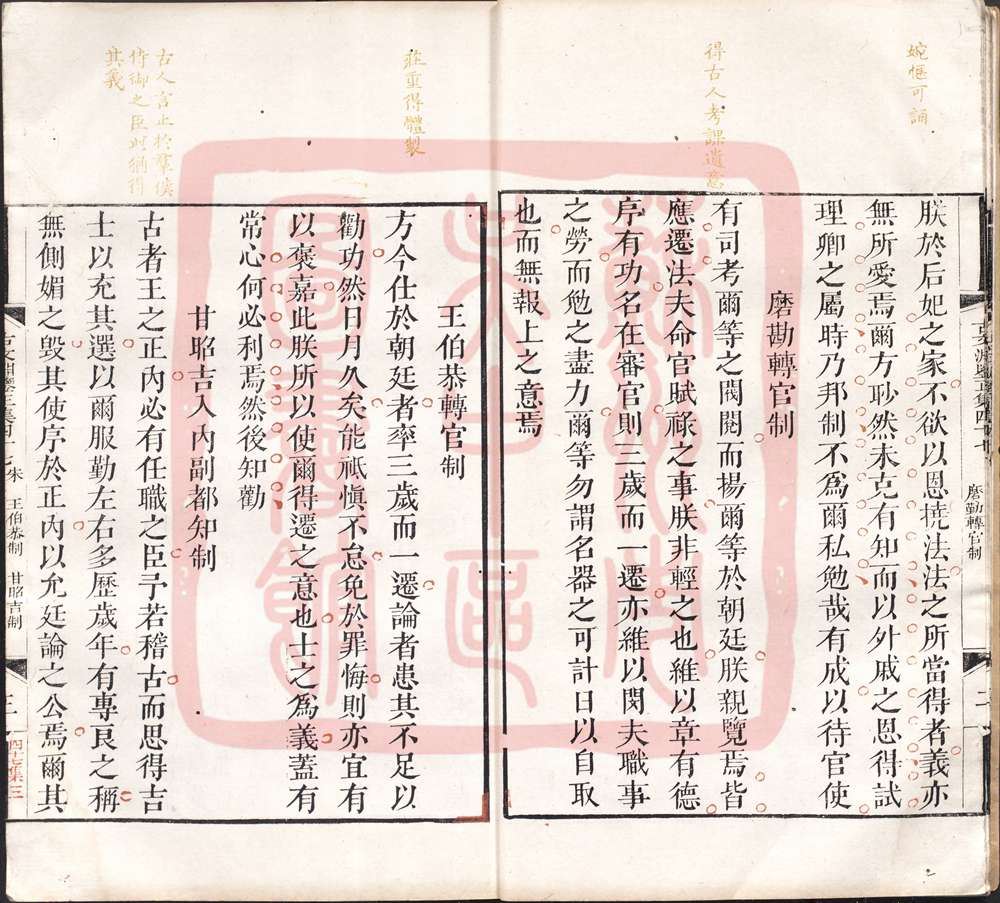 婉愜可誦
得古人考課遺意
朕於后妃之家不欲以恩撓法法之所當得者義亦
無所愛焉爾方眇然未克有知而以外戚之恩得試
理卿之屬時乃邦制不為爾私勉哉有成以待官使
磨勘轉官制
有司考爾等之閥閱而揚爾等於朝廷朕親覽焉皆
應遷法夫命官賦祿之事朕非輕之也維以章有德
序有功名在審官則三歲而一遷亦維以閔夫職事
之勞而勉之盡力爾等勿謂名器之可計日以自取
也而無報上之意焉
磨勘轉官制
二
莊重得體製
古人言止於羣僕
侍御之臣此猶得
其義
王伯恭轉官制
方今仕於朝廷者率三歲而一遷論者患其不足以
勸功然日月久矣能祗慎不怠免於罪悔則亦宜有
以褒嘉此朕所以使爾得遷之意也士之為義蓋有
常心何必利焉然後知勸
甘昭吉入內副都知制
古者王之正內必有任職之臣予若稽古而思得吉
士以充其選以爾服勤左右多歷歲年有專良之稱
無側媚之毀其使序於正內以允廷論之公焉爾其
宋 王伯恭制 甘昭吉制
三
四十七集三